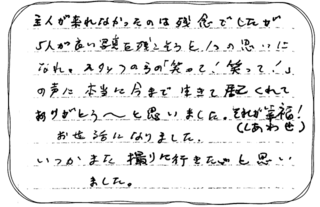 主人が来れなかったのは残念でしたが
5人が良い写真を残こそうと1つの思いに
なれ。スタッフのらの「笑って!笑って!」
の声に本当に今まで生きて居てくれて
ありがとう〜と思いました。それが幸福!
(しあわせ)
お世話になりました。
いつかまた撮りに行きたいと思い
ました。